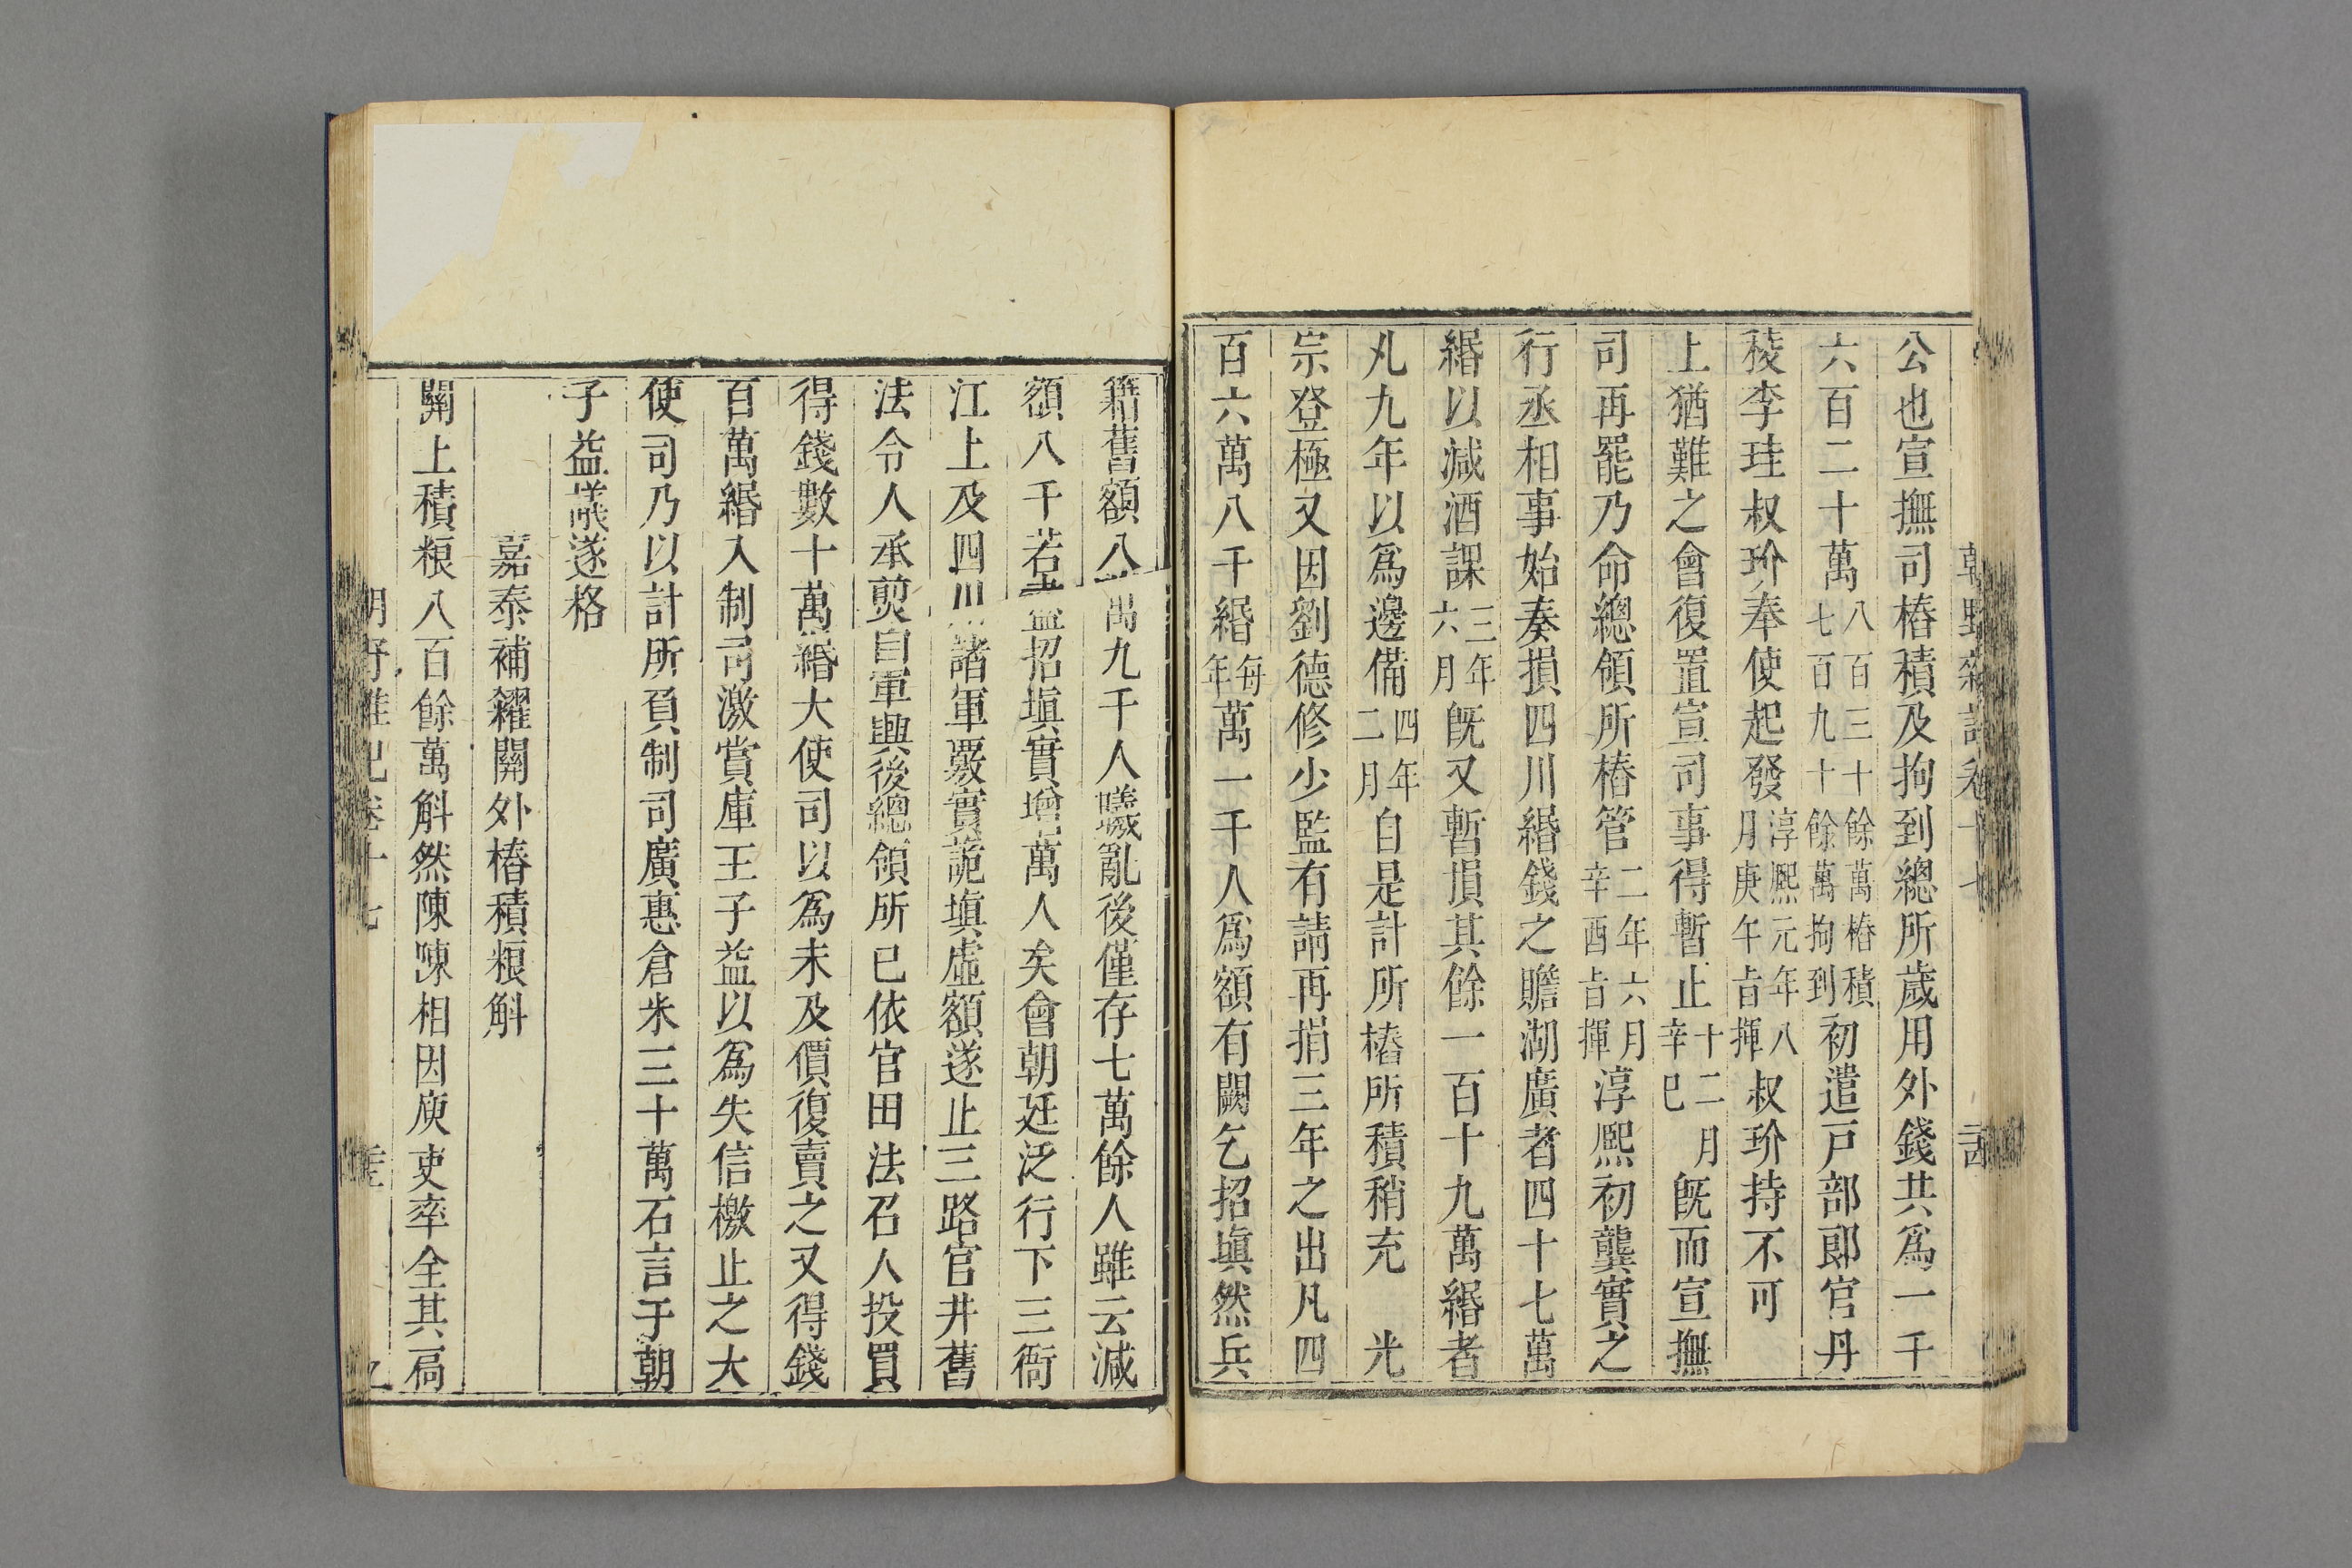 公也宣撫司樁積及拘到總所歲用外錢共爲一千
六百二十萬八百三十餘萬樁積七百九十餘萬拘到初遣戸部郞官丹
稜李珪叔玠奉使起發淳熙元年八月庚午㫖揮叔玠持不可
上猶難之會復置宣司事得暫止十二月辛巳旣而宣撫
司再罷乃命總領所樁管二年六月辛酉㫖揮淳熙初龔實之
行丞相事始奏損四川緡錢之贍湖廣者四十七萬
緡以減酒課三年六月旣又暫損其餘一百十九萬緡者
凡九年以爲邊備四年二月自是計所樁所積稍充光
宗登極又因劉德修少監有請再捐三年之出凡四
百六萬八千緡每年萬一千人爲額有闕乞招塡然兵
籍舊額八萬九千人曦亂後僅存七萬餘人雖云減
額八千若盡招塡實增萬人矣會朝廷泛行下三衙
江上及四川諸軍覈實詭塡虛額遂止三路官井舊
法令人承煎自軍興後總領所已依官田法召人投買
得錢數十萬緡大使司以爲未及價復賣之又得錢
百萬緡入制司激賞庫王子益以爲失信檄止之大
使司乃以計所負制司廣惠倉米三十萬石言于朝
子益議遂格
嘉泰補糴關外樁積粮斛
關上積粮八百餘萬斛然陳陳相因庾吏率全其扃